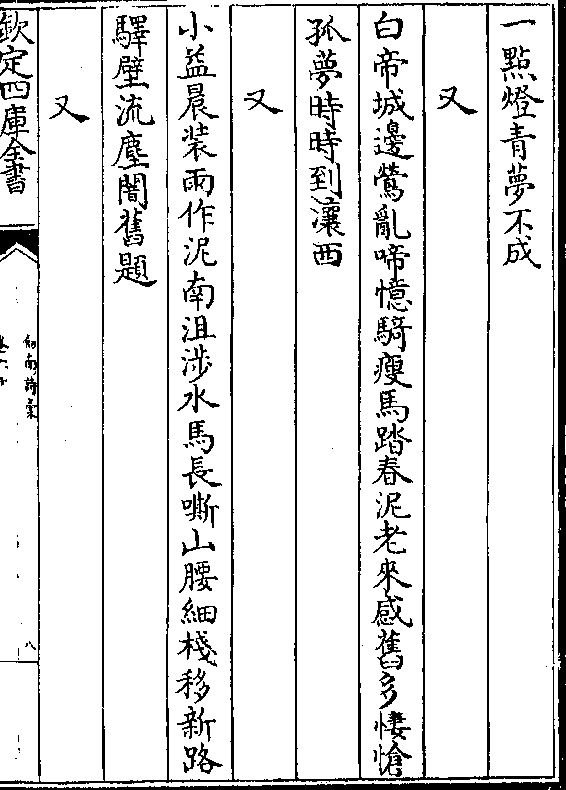 一點燈青夢不成
又
白帝城邊鶯亂啼憶騎瘦馬踏春泥老來感舊多悽愴
孤夢時時到瀼西
又
小益晨装雨作泥南沮涉水馬長嘶山腰細棧移新路
驛壁流塵闇舊題
又
欽定四庫全書
劍南詩稾
八